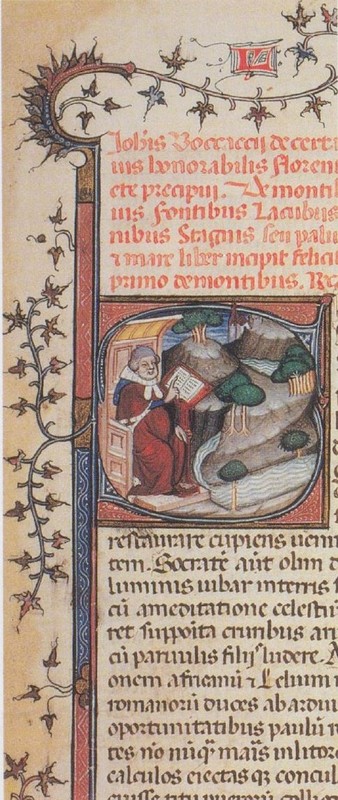 Ioh'is Boccaccij de cert
uis honorabilis Floren
ete precipui. De montib
uis fontibus Lacubus
nibus Stagnis seu palu
⁊ mare liber incipit felici
primo demontibus. R
restaurare cupiens ueni
tem. Socrate aut olim
luminis iubar interris
cū ameditatione celesti
ret supposita cruribus aru
cū paruulis filijs ludere.
onem africanū ⁊ Lelium
romanorū duces ab ardui
oportunitatibus paulū
tes nō nūq̄ maris inlitor
calculos eiectas q̄ concul